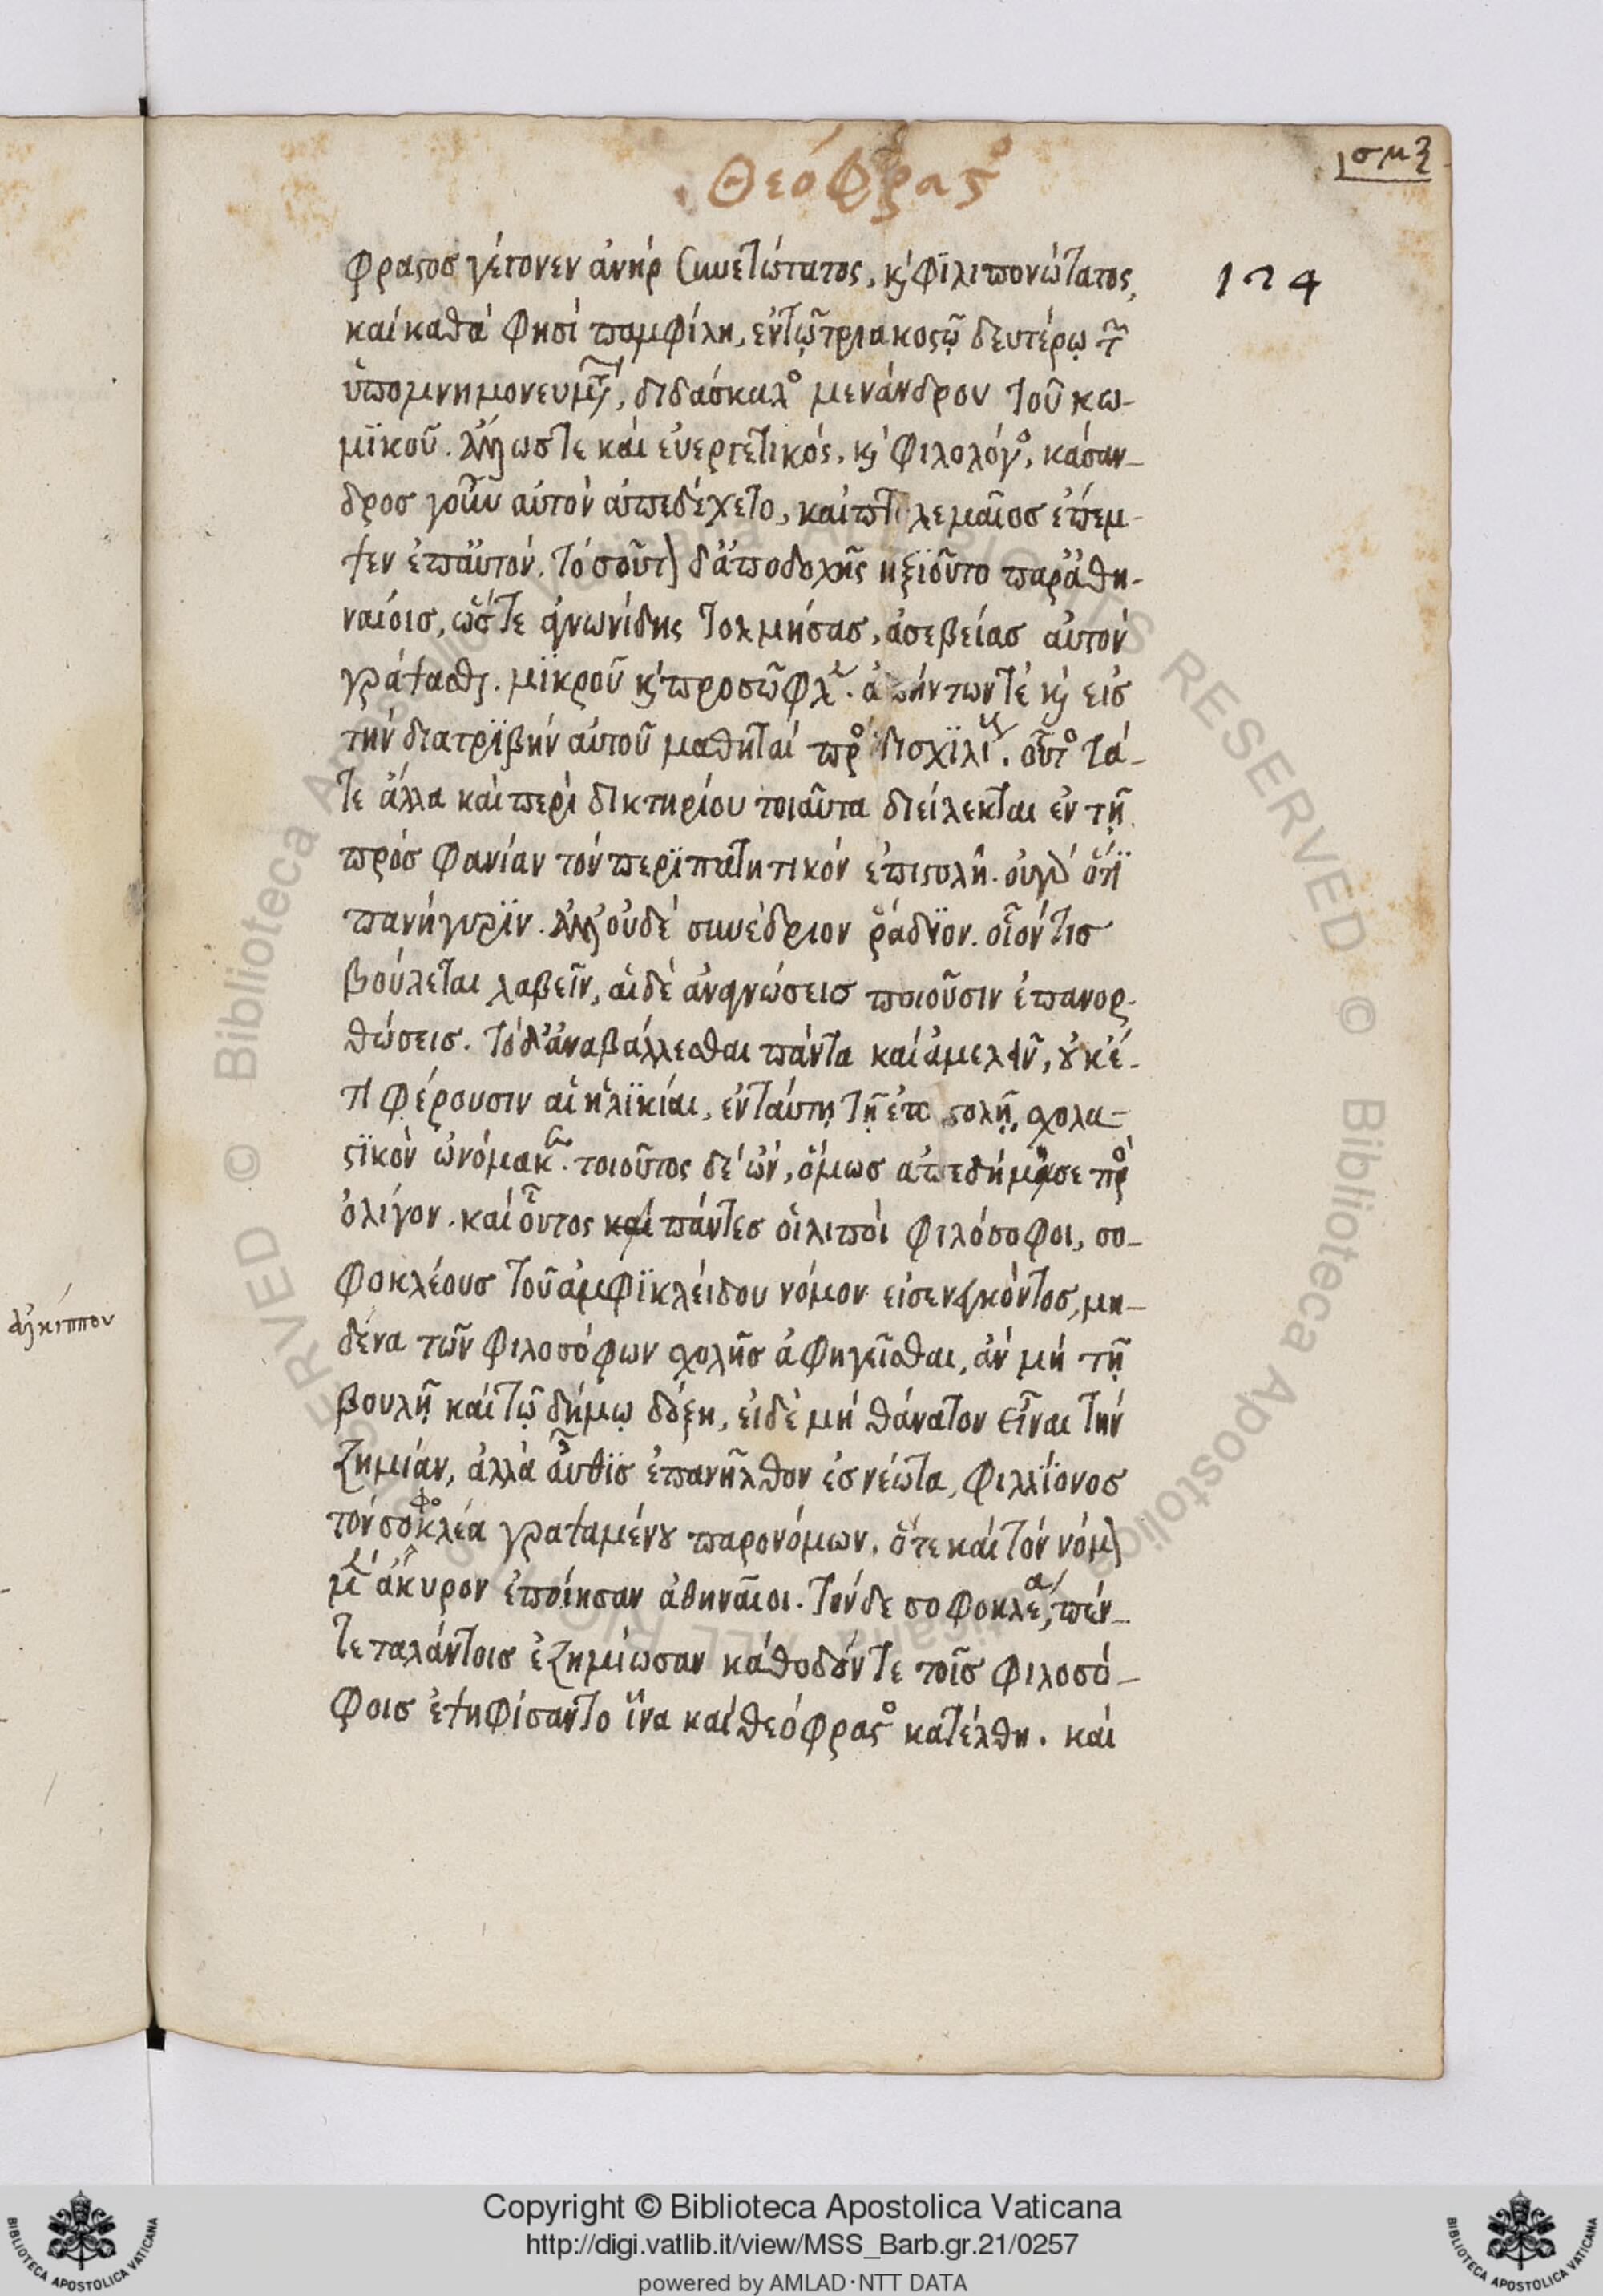 Θεόφραςο
σμζ
124
φραςος γέγονεν ἀνὴρ συνετώτατος, κỳ φϊλιπονώτατος,
καὶ καθά φησι παμφίλη, ἐν τῷ τριακοςῷ δευτέρῳ τ
ὑπομνημονευμτ, διδάσκαλο μενάνδρου τοῦ κω-
μϊκοῦ. ἄλλως τε καὶ εὐεργετικός, κỳ φιλολόγο, κάσαν-
δρος γοῦν αὐτὸν ἀπεδέχετο, καὶ πτολεμαῖος ἔπεμ-
ψεν ἐπαὐτόν. τοσοῦτ δἀποδοχῆς ἠξϊοῦτο παρἀθη-
ναίοις, ὥστε ἁγνωνίδης τολμήσας, ἀσεβείας αὐτὸν
γράψασθ. μϊκροῦ κỳ προσῶφλ. ἀπήντων τὲ κỳ εἰς
τὴν διατρϊβὴν αὐτοῦ μαθηταὶ πρὸ δισχϊλι. οὗτο τά-
τε ἄλλα καὶ περὶ δικτηρίου τοιαῦτα διείλεκται ἐν τῇ
πρὸς φανίαν τὸν περϊπατητικὸν ἐπιςολῆ. οὐγὰ ὅτϊ
πανήγυρϊν. ἀλλ οὐδὲ συνέδριον ῥάδϊον. οἷόν τις
βούλεται λαβεῖν, αἱ δὲ ἀναγνώσεις ποιοῦσιν ἐπανορ-
θώσεις. τὸ δἀναβάλλεσθαι πάντα καὶ ἀμελεῖν, ȣκέ-
τι φέρουσιν αἱ ἡλϊκίαι, ἐν ταύτῃ τῇ ἐπιςολῇ, σχολα-
ςϊκὸν ὠνόμακ. τοιοῦτος δὲ ὤν, ὅμως ἀπεδήμησε πρὸ
ὀλίγον. καὶ οὗτος καὶ πάντες οἱ λιποὶ φιλόσοφοι, σο-
φοκλέους τοῦ ἀμφϊκλείδου νόμον εἰσενεγκόντος, μη-
δένα τῶν φιλοσόφων σχολῆς ἀφηγεῖσθαι, ἂν μὴ τῇ
βουλῇ καὶ τῷ δήμῳ δόξη, εἰ δὲ μὴ θάνατον εἶναι τὴν
ζημίαν, ἀλλὰ αὖθϊς ἐπανῆλθον ἐς νέωτα, φιλλΐονος
τὸν σοφοκλέα γραψαμένȣ παρονόμων. ὅτε καὶ τὸν νόμ
μὲ ἄκυρον ἐποίησαν ἀθηναῖοι. τὸν δε σοφοκλέα, πέν-
τε ταλάντοις ἐζημίωσαν κάθοδόν τε τοῖς φιλοσό-
φοις ἐψηφίσαντο ἵνα καὶ θεόφραςο κατέλθη. καὶ
Copyright © Biblioteca Apostolica Vaticana
http://digi.vatlib.it/view/MSS_Barb.gr.21/0257
powered by AMLAD·NTT DATA